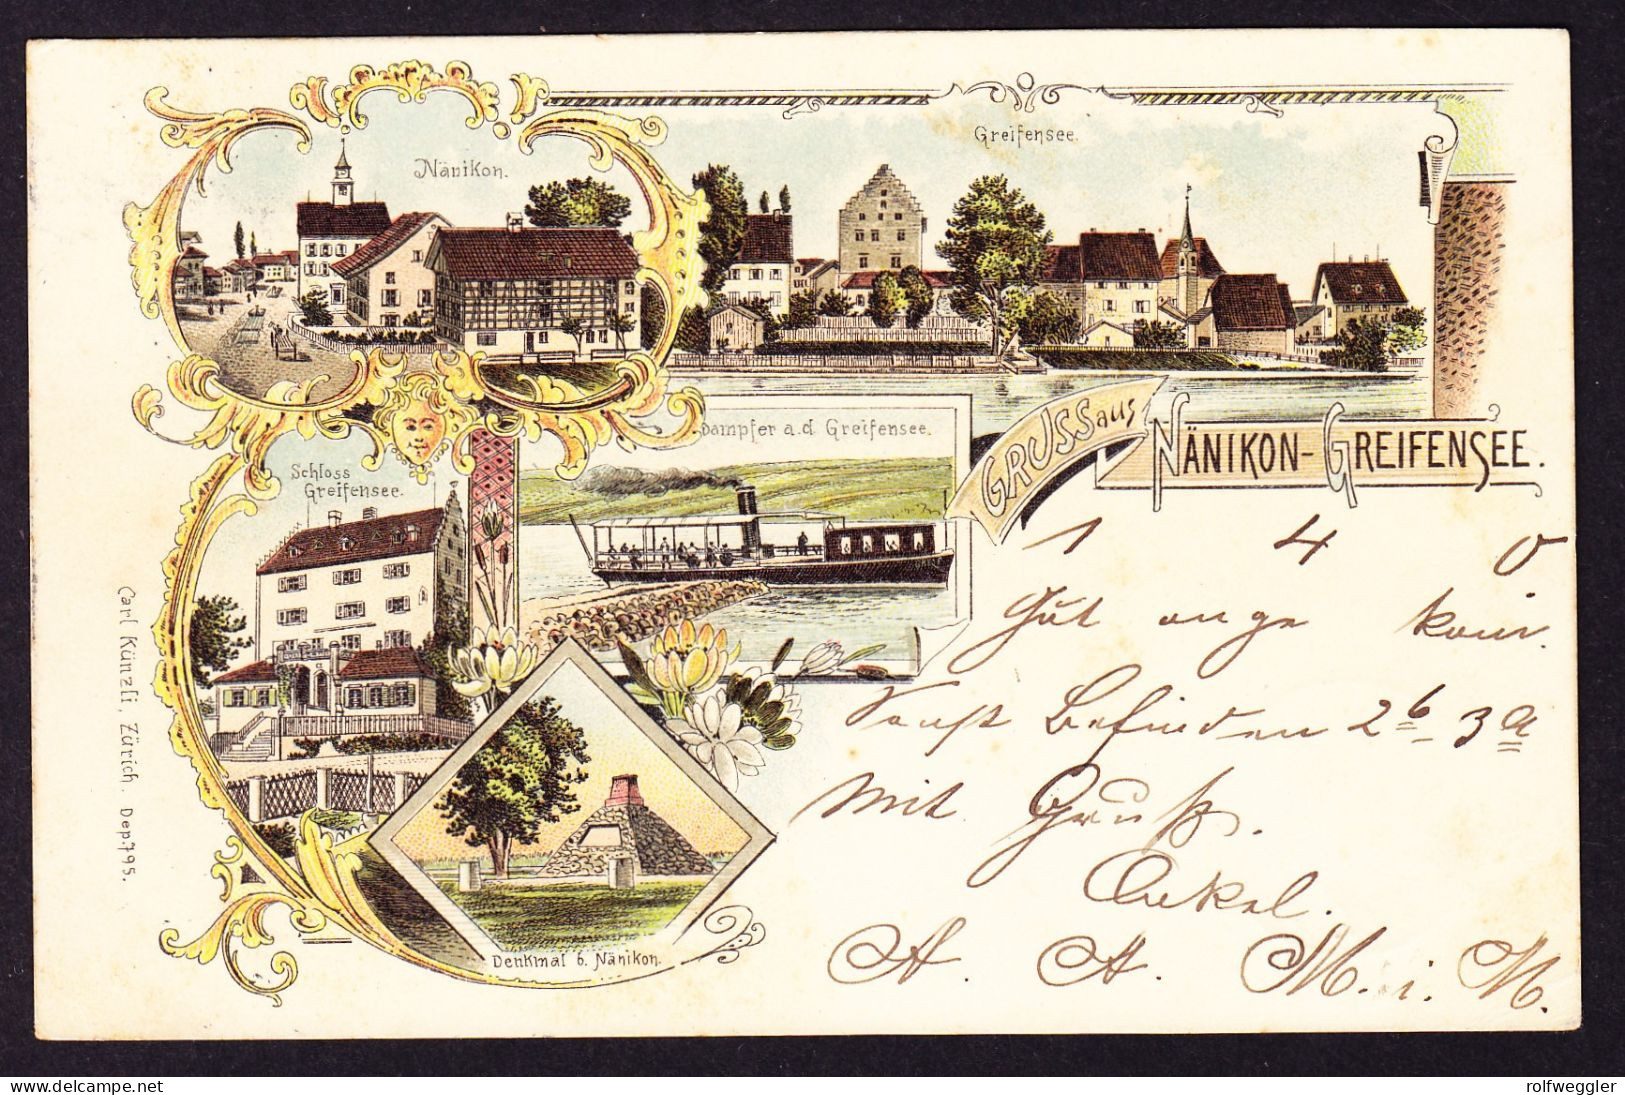 Nänikon.
Greifensee.
Schloss
Greifensee.
Dampfer a.d. Greifensee.
GRUSS aus
NÄNIKON-GREIFENSEE.
Denkmal b. Nänikon.
Carl Künzli, Zürich. Dep. 795.
1 4 0
Gut ange kom.
Sonst Befinden 2 b 3 a
Mit Gruß.
Onkel.
A. A. M. i. M.
delcampe.net
rolfweggler